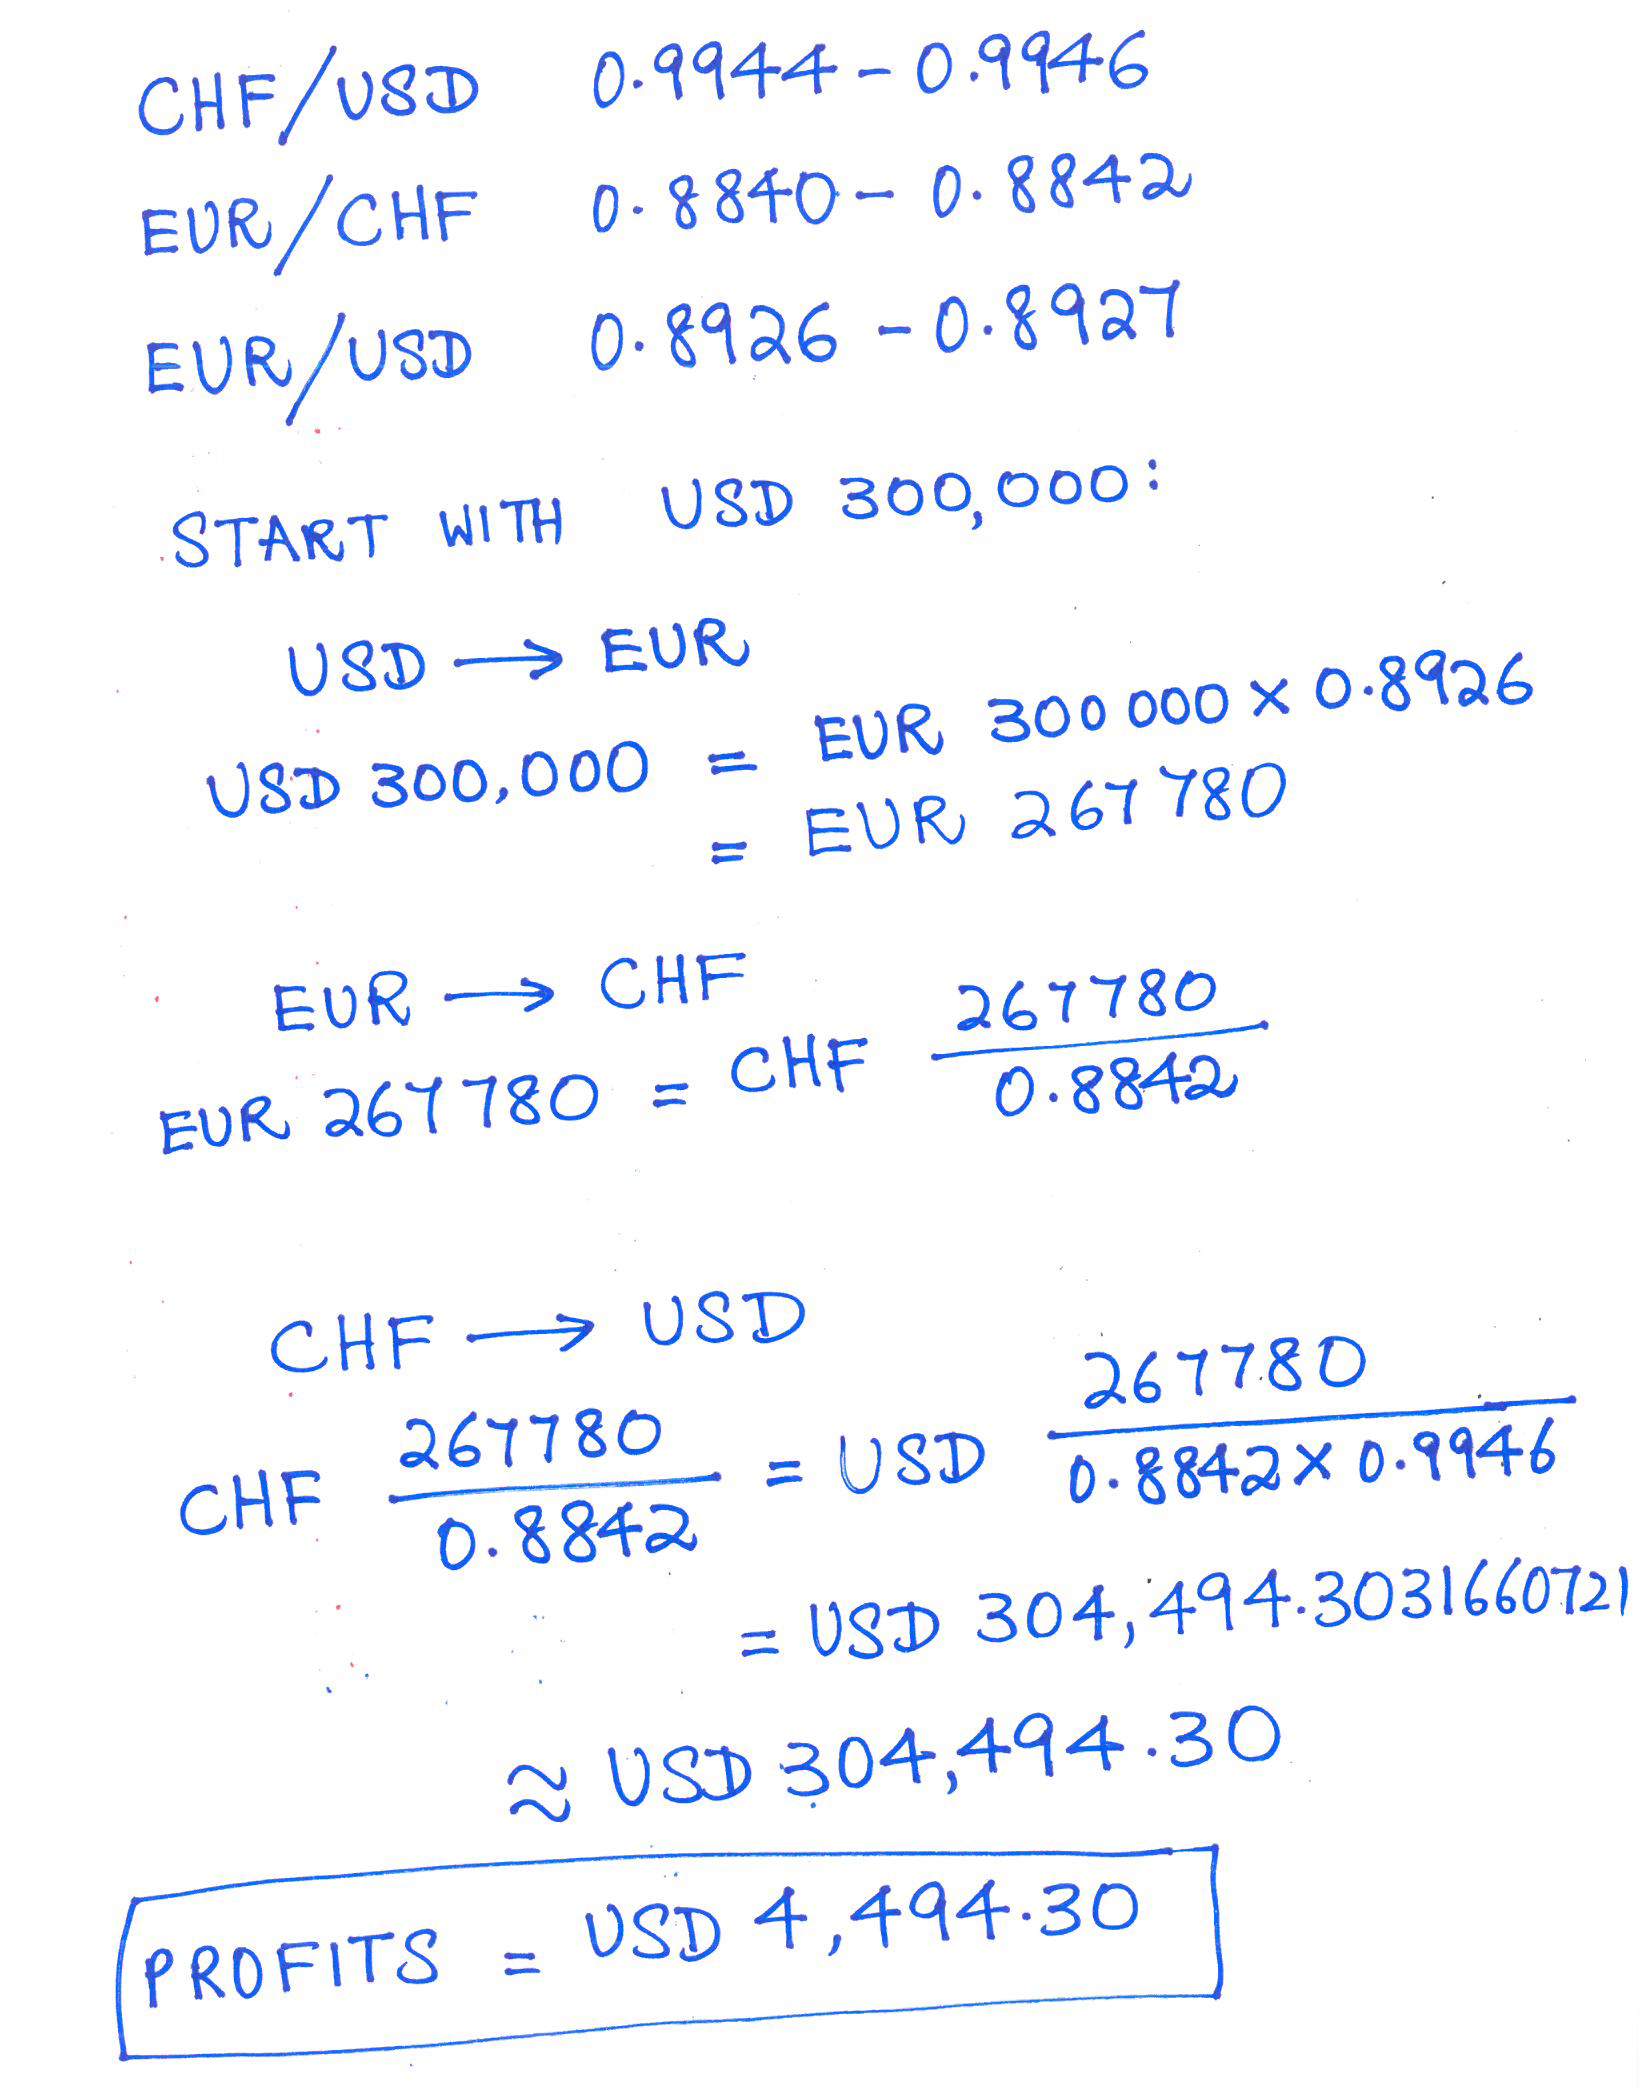 CHF/USD 0.9944 - 0.9946
EUR/CHF 0.8840 - 0.8842
EUR/USD 0.8926 - 0.8927
START WITH USD 300,000:
USD → EUR
USD 300,000 = EUR 300 000 × 0.8926
= EUR 267 780
EUR → CHF
EUR 267780 = CHF 267780
0.8842
CHF → USD
CHF 267780 = USD 267780
0.8842 0.8842 × 0.9946
= USD 304,494.3031660721
≈ USD 304,494.30
PROFITS = USD 4,494.30